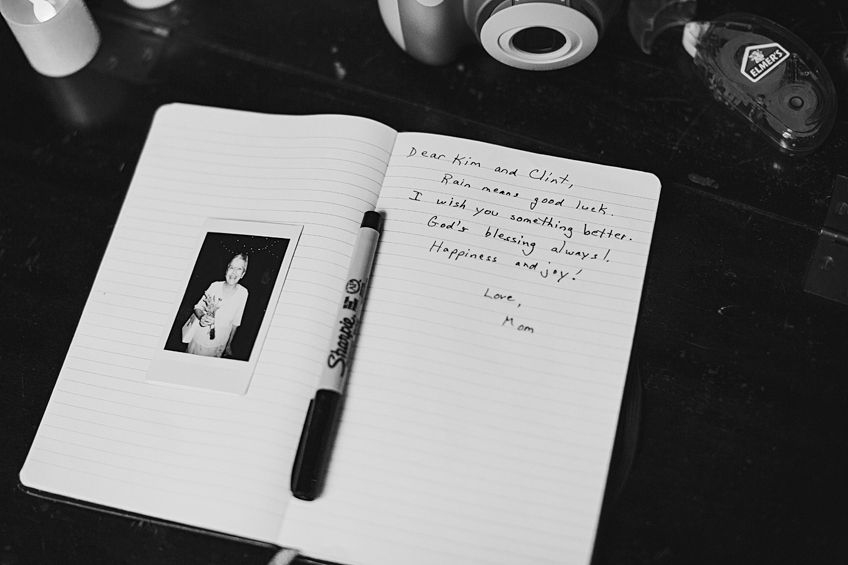 Dear Kim and Clint,
Rain means good luck.
I wish you something better.
God's blessing always!
Happiness and joy!
Love,
Mom
Sharpie
ELMER'S